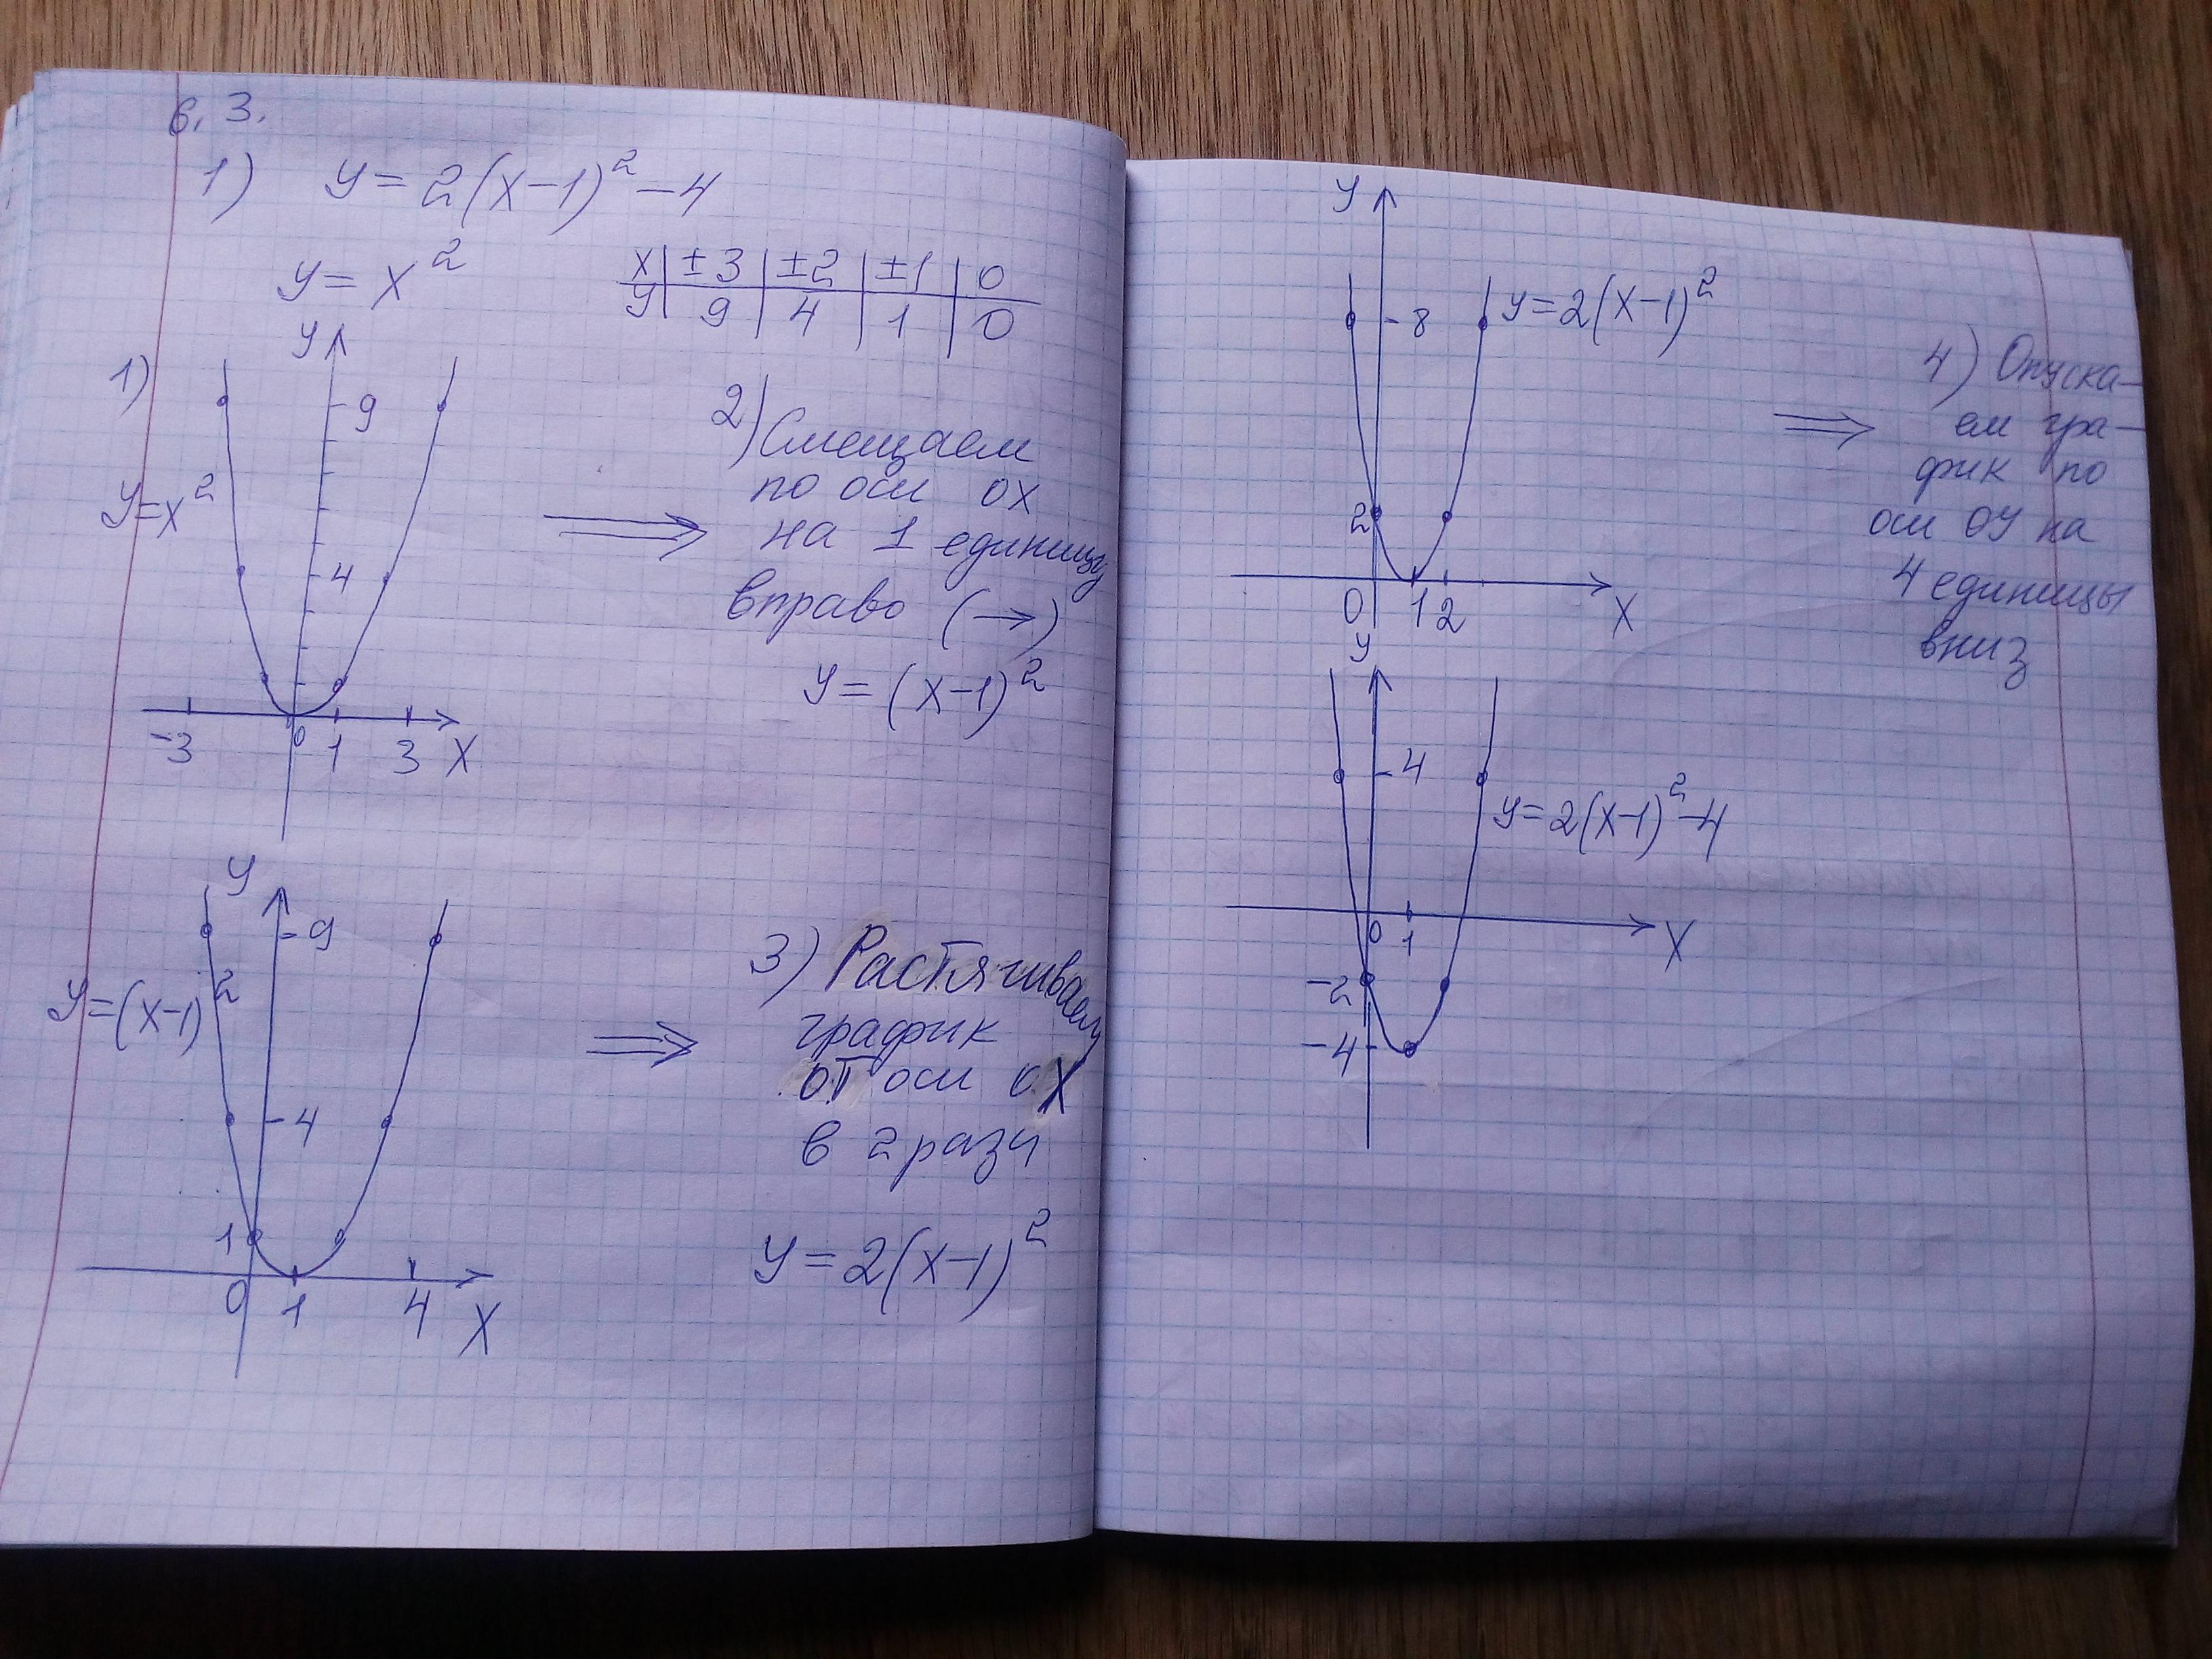 6.3.
1) y=2(x-1)²-4
y=x²
x | ±3 | ±2 | ±1 | 0
y | 9 | 4 | 1 | 0
1)
y
9
y=x²
4
-3 0 1 3 x
2) Смещаем
по оси ОХ
на 1 единицу
вправо (→)
y=(x-1)²
y
9
y=(x-1)²
4
1
0 1 4 x
3) Растягиваем
график
от оси ОХ
в 2 разы
y=2(x-1)²
y
8
y=2(x-1)²
2
0 1 2 x
4) Опуска-
ем гра-
фик по
оси ОУ на
4 единицы
вниз
y
4
y=2(x-1)²-4
0 1 x
-2
-4